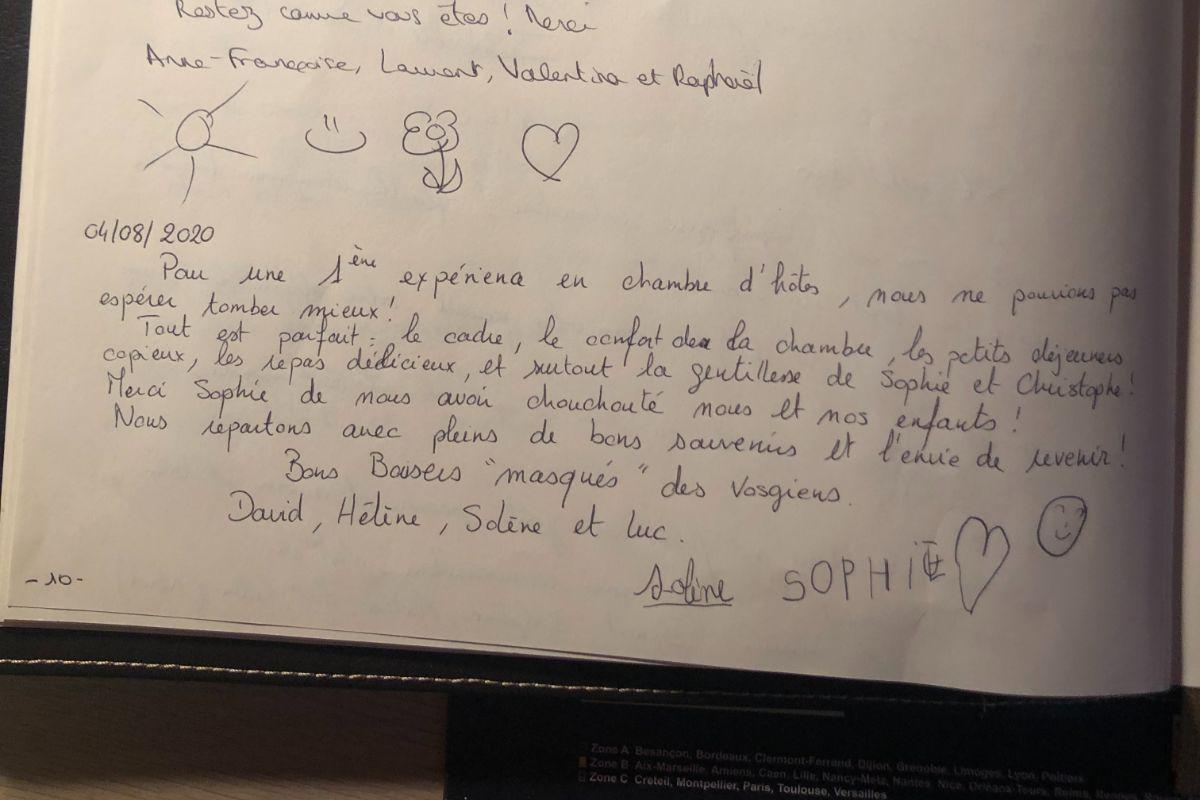 Restez comme vous êtes ! Merci
Anne-Françoise, Laurent, Valentina et Raphaël
04/08/2020
Pour une 1ère expérience en chambre d'hôtes, nous ne pouvions pas
espérer tomber mieux !
Tout est parfait : le cadre, le confort de la chambre, les petits déjeuners
copieux, les repas délicieux, et surtout la gentillesse de Sophie et Christophe !
Merci Sophie de nous avoir chouchouté nous et nos enfants !
Nous repartons avec pleins de bons souvenirs et l'envie de revenir !
Bons Baisers "masqués" des Vosgiens.
David, Hélène, Solène et Luc.
Solène SOPHiE
-10-
Zone A Besançon, Bordeaux, Clermont-Ferrand, Dijon, Grenoble, Limoges, Lyon, Poitiers
Zone B Aix-Marseille, Amiens, Caen, Lille, Nancy-Metz, Nantes, Nice, Orléans-Tours, Reims, Rennes,
Zone C Créteil, Montpellier, Paris, Toulouse, Versailles